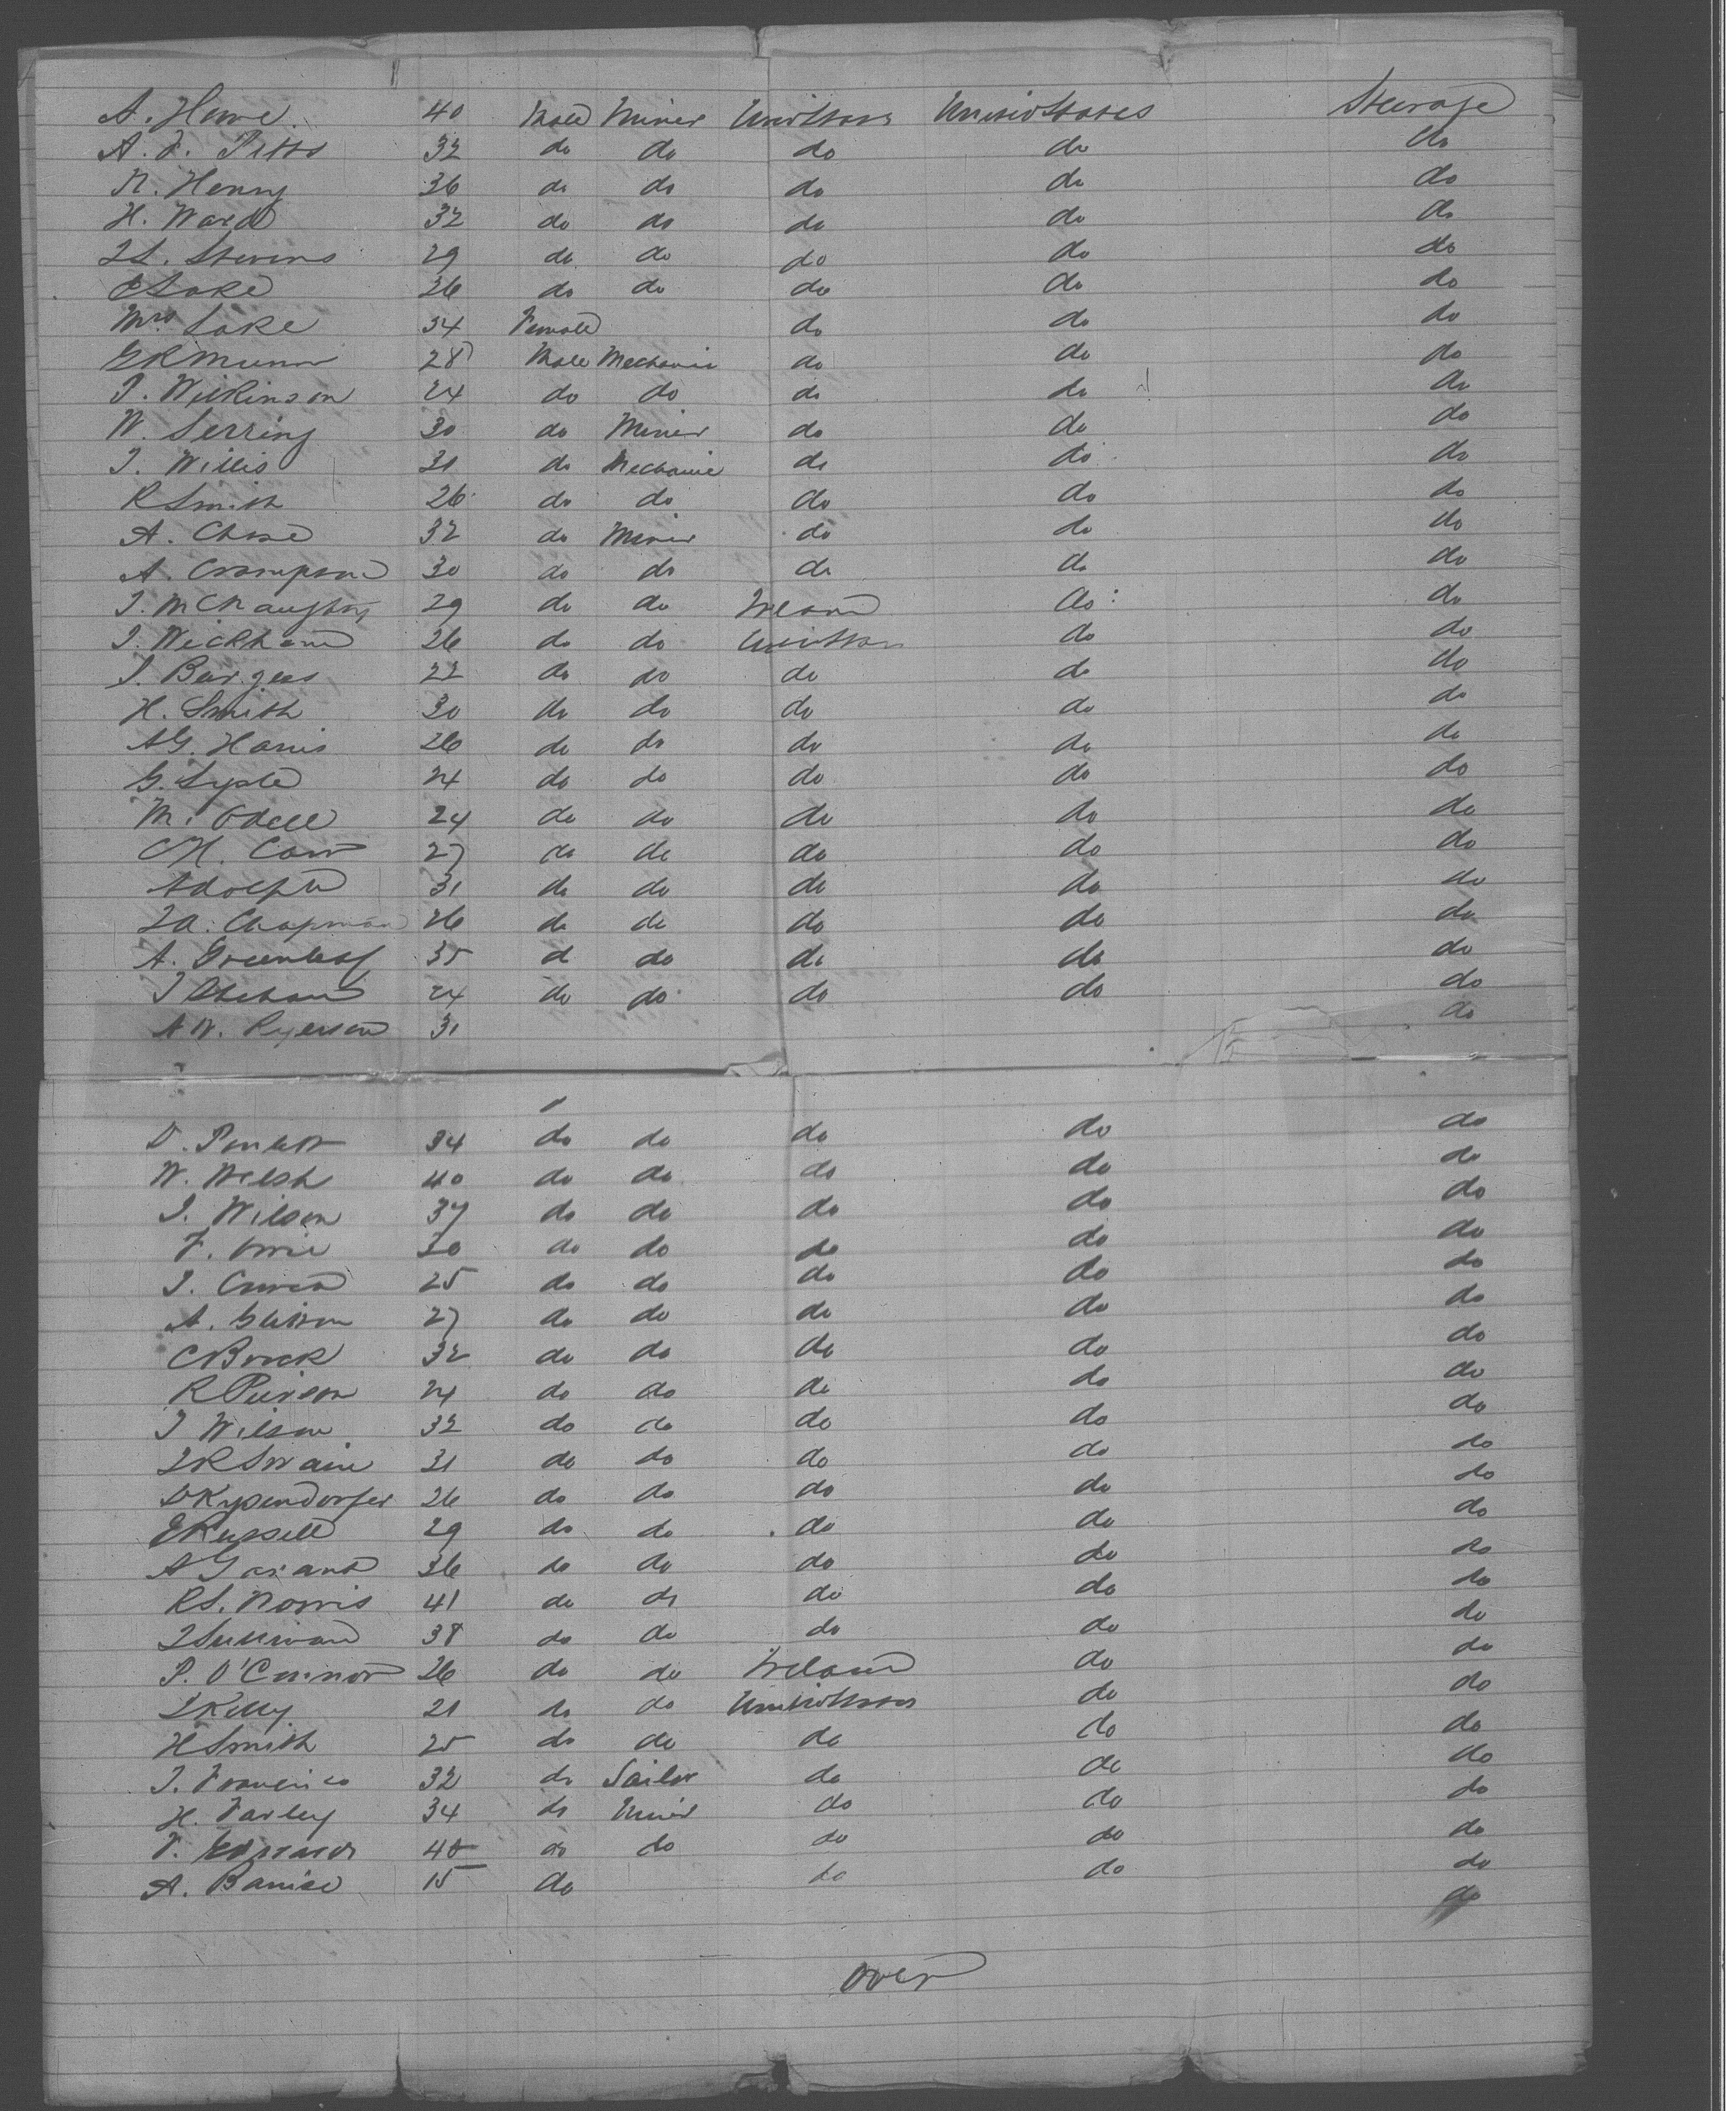 A. Howe 40 Male Miner United States United States Steerage
A. F. Pitts 32 do do do do do
N. Henry 36 do do do do do
H. Ward 32 do do do do do
Stevens 29 do do do do do
Lake 36 do do do do do
Mrs Lake 34 Female do do do
G R Munn 28 Male Mechanic do do do
J. Wilkinson 24 do do do do do
W. Serring 30 do Miner do do do
J. Willis 31 do Mechanic do do do
R Smith 26 do do do do do
A. Chase 32 do Miner do do do
A. 30 do do do do do
J. McNaughton 29 do do Ireland do do
J. Wickham 26 do do United States do do
J. Burgess 22 do do do do do
H. Smith 30 do do do do do
A G. Harris 26 do do do do do
G. 24 do do do do do
M. Odell 24 do do do do do
C H. 27 do do do do do
Adolph 31 do do do do do
Chapman 26 do do do do do
A. Greenleaf 35 d do do do do
24 do do do do do
A W. Ryerson 31 do
D. 34 do do do do do
W. Welsh 40 do do do do do
J. Wilson 37 do do do do do
F. 30 do do do do do
J. 25 do do do do do
A. 27 do do do do do
C Brock 32 do do do do do
R Peirson 24 do do do do do
J Wilson 32 do do do do do
Swain 31 do do do do do
26 do do do do do
E Russell 29 do do do do do
A 36 do do do do do
R S. Norris 41 do do do do do
Sullivan 38 do do do do do
P. O'Connor 26 do do Ireland do do
Kelly 21 do do United States do do
H Smith 25 do do do do do
J. Francisco 32 do Sailor do do do
H. Farley 34 do Miner do do do
F. 40 do do do do do
A. 15 do do do do
do
over